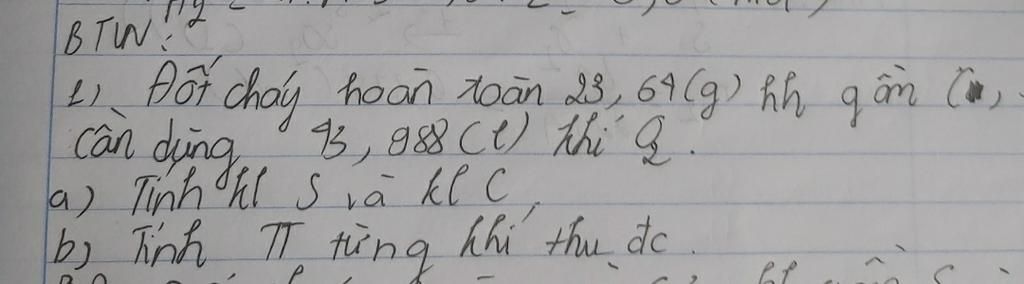 BTVN:
1) Đốt cháy hoàn toàn 23,64(g) hh gồm C,
cần dùng 43,988(l) khí O2.
a) Tính kl S và kl C,
b) Tính TT từng khí thu đc.